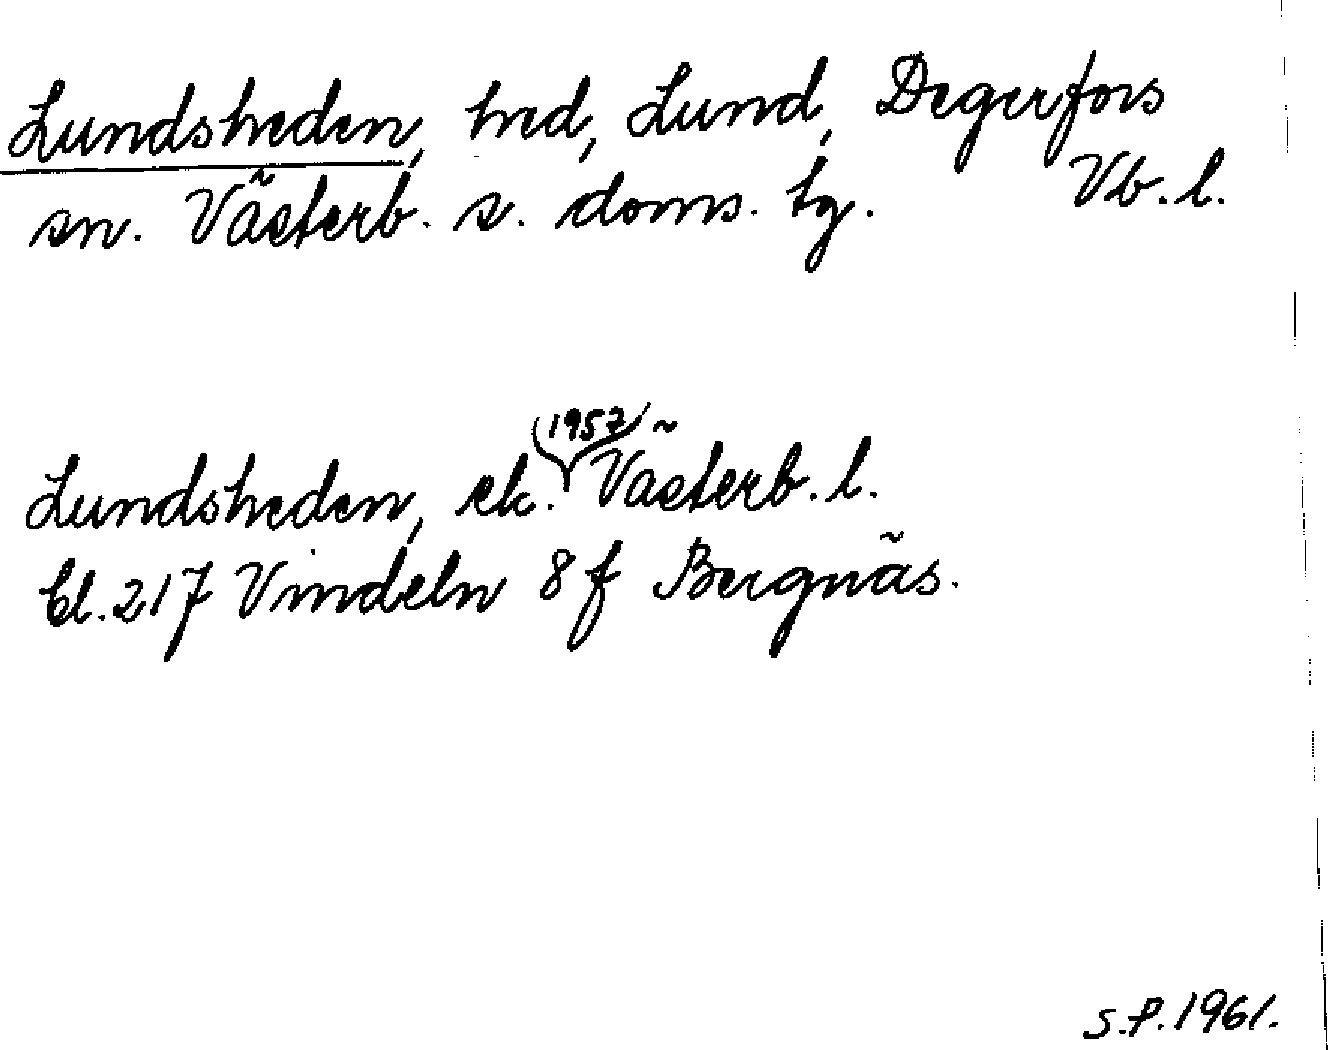 Lundsheden, hed, Lund, Degerfors
sn. Västerb. s. doms. tg. Vb. l.
(1957)
Lundsheden, ek. Västerb. l.
bl. 217 Vindeln 8 f Bergnäs.
S.P. 1961.